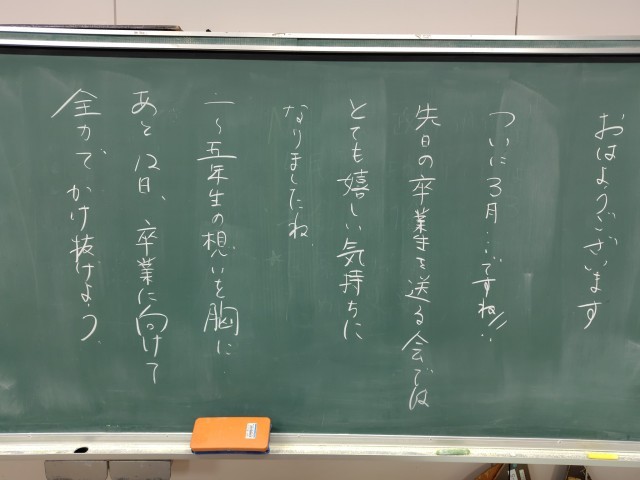 おはようございます
ついに3月…ですね!!
先日の卒業生を送る会では
とても嬉しい気持ちに
なりましたね。
一〜五年生の想いを胸に
あと12日、卒業に向けて
全力でかけ抜けよう。